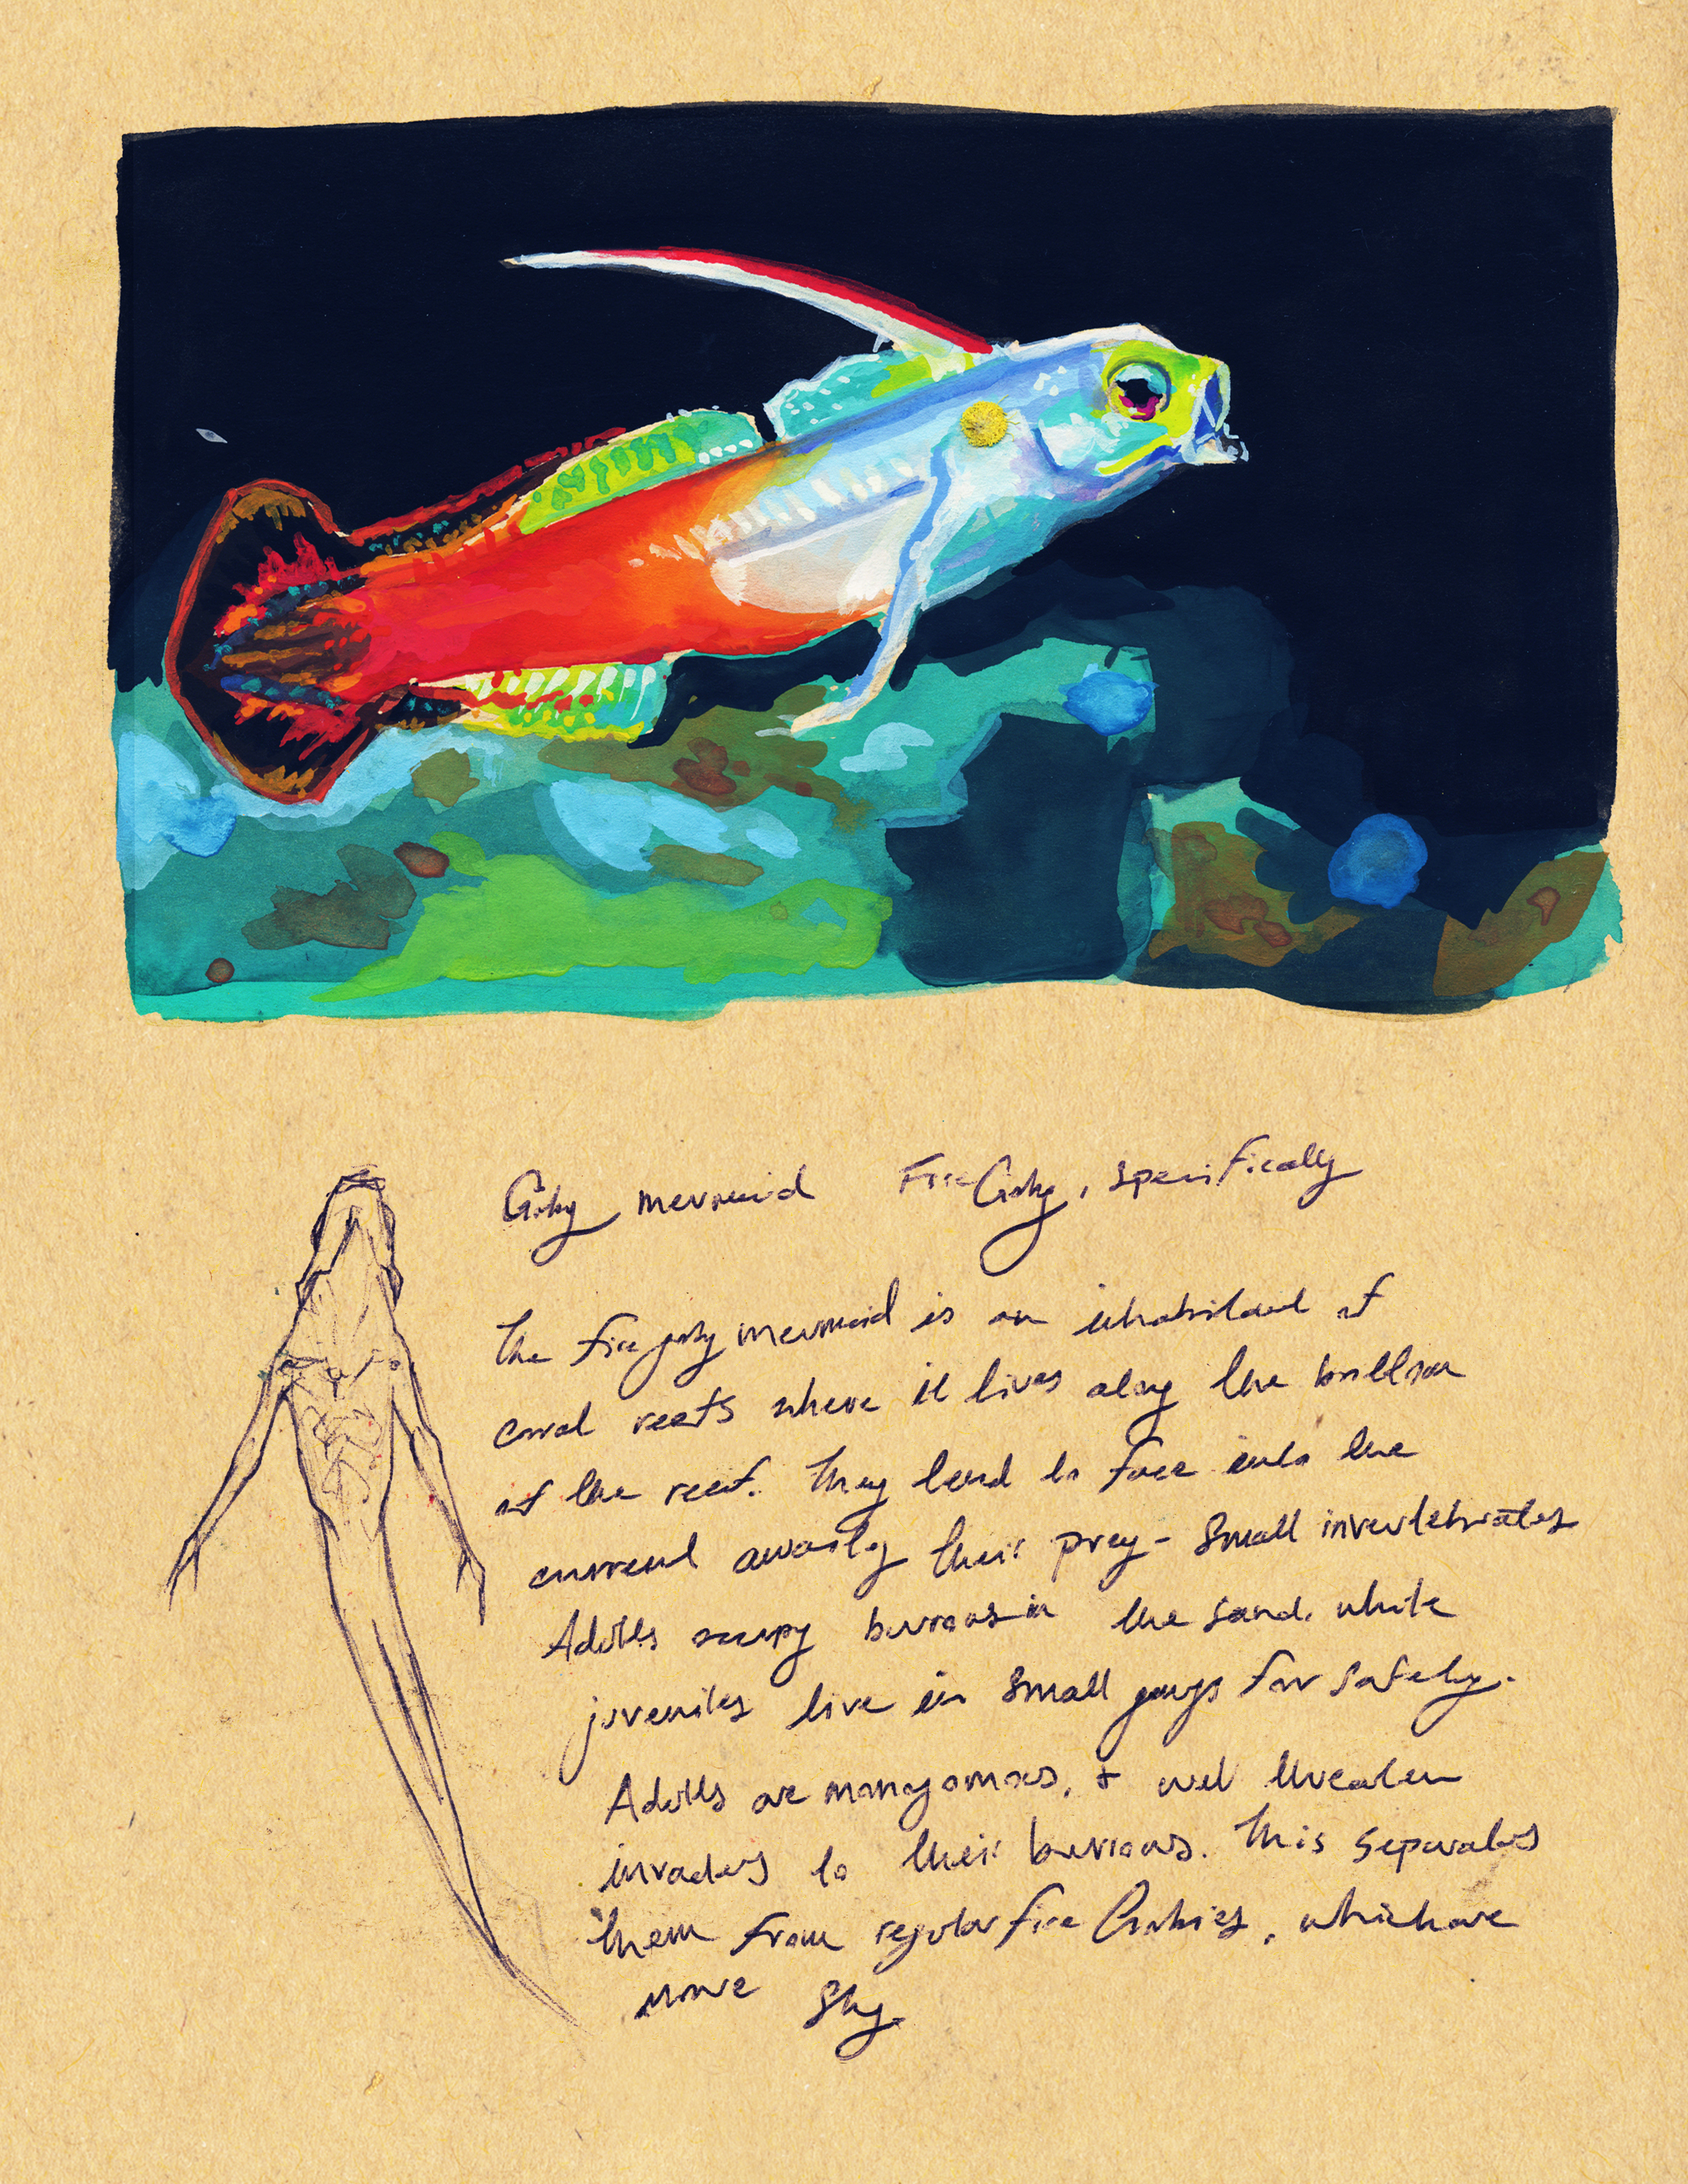 Goby mermaid Fire Goby, specifically
The fire goby mermaid is an inhabitant of
coral reefs where it lives along the bottom
of the reef. They tend to face into the
current awaiting their prey - small invertebrates
Adults occupy burrows in the sand, while
juveniles live in small groups for safety.
Adults are monogomous, & will threaten
invaders to their burrows. This separates
them from regular fire Gobies, which are
more shy.